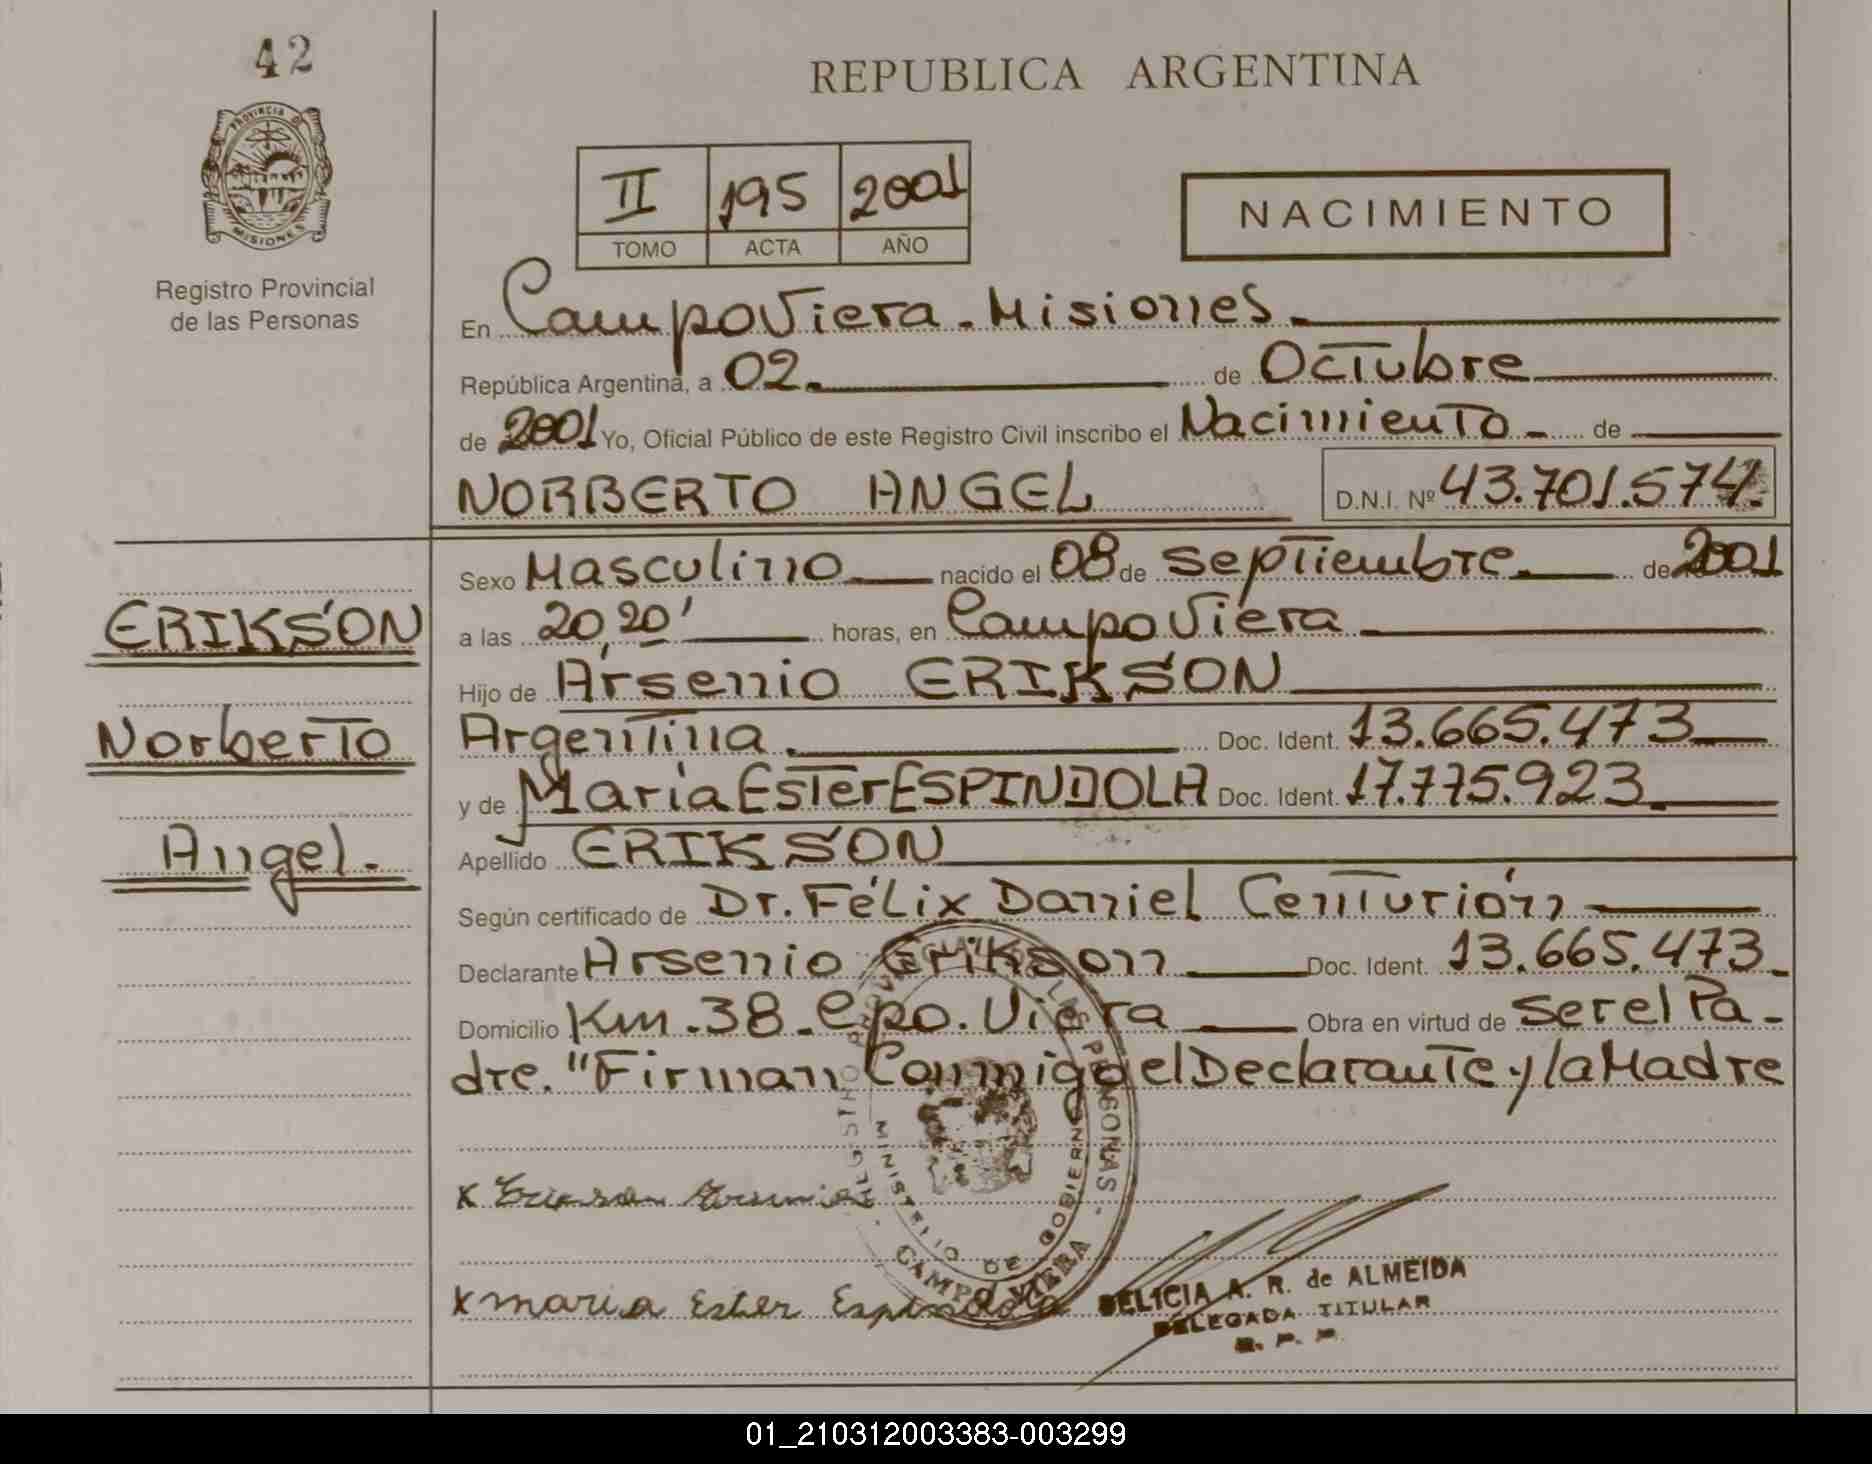 42
PROVINCIA DE
MISIONES
Registro Provincial
de las Personas
REPUBLICA ARGENTINA
II 195 2001
TOMO ACTA AÑO
NACIMIENTO
En Campo Viera - Misiones
República Argentina, a 02 de Octubre
de 2001 Yo, Oficial Público de este Registro Civil inscribo el Nacimiento de
NORBERTO ANGEL D.N.I. Nº 43.701.574
Sexo Masculino nacido el 08 de septiembre de 2001
a las 20,20' horas, en Campo Viera
Hijo de Arsenio ERIKSON
Argentina. Doc. Ident. 13.665.473
y de María Ester ESPINDOLA Doc. Ident. 17.775.923
Apellido ERIKSON
Según certificado de Dr. Félix Daniel Centurión
Declarante Arsenio Erikson Doc. Ident. 13.665.473
Domicilio Km. 38 - Cpo. Viera Obra en virtud de ser el Pa-
dre. "Firman Conmigo el Declarante y la Madre
ERIKSON
Norberto
Angel.
x Erikson Arsenio
x maria Ester Espindola
REGISTRO PROVINCIAL DE LAS PERSONAS
MINISTERIO DE GOBIERNO
CAMPO VIERA
DELICIA A. R. de ALMEIDA
DELEGADA TITULAR
R. P. P.
01_210312003383-003299